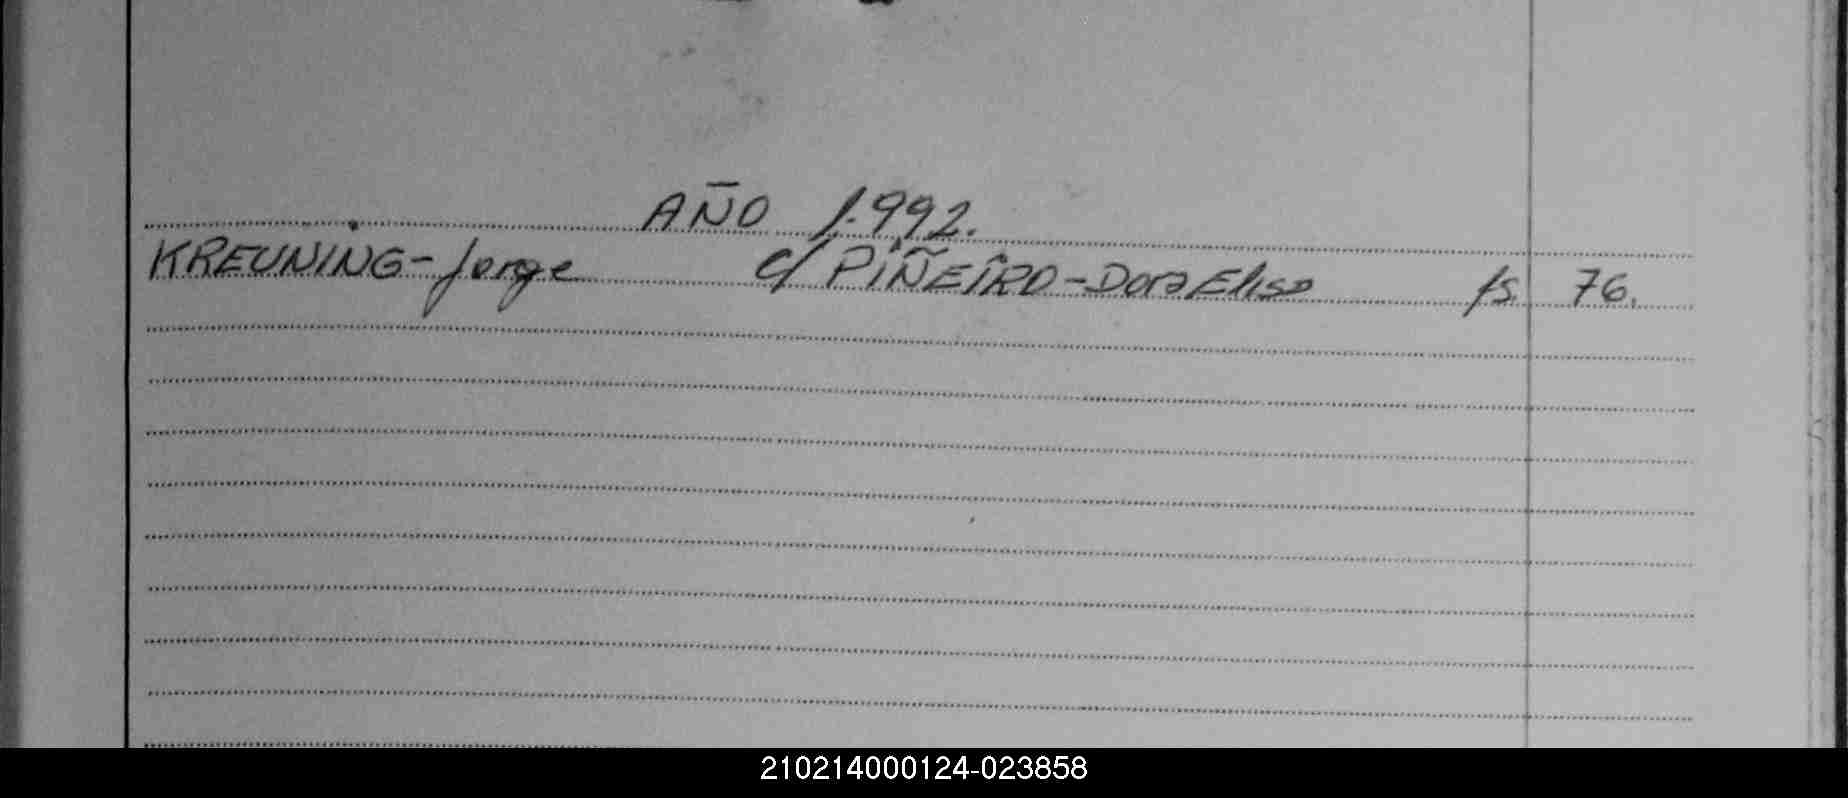 AÑO 1.992.
KREUNING-Jorge c/ PIÑEIRO-Dora Elisa fs. 76.
210214000124-023858